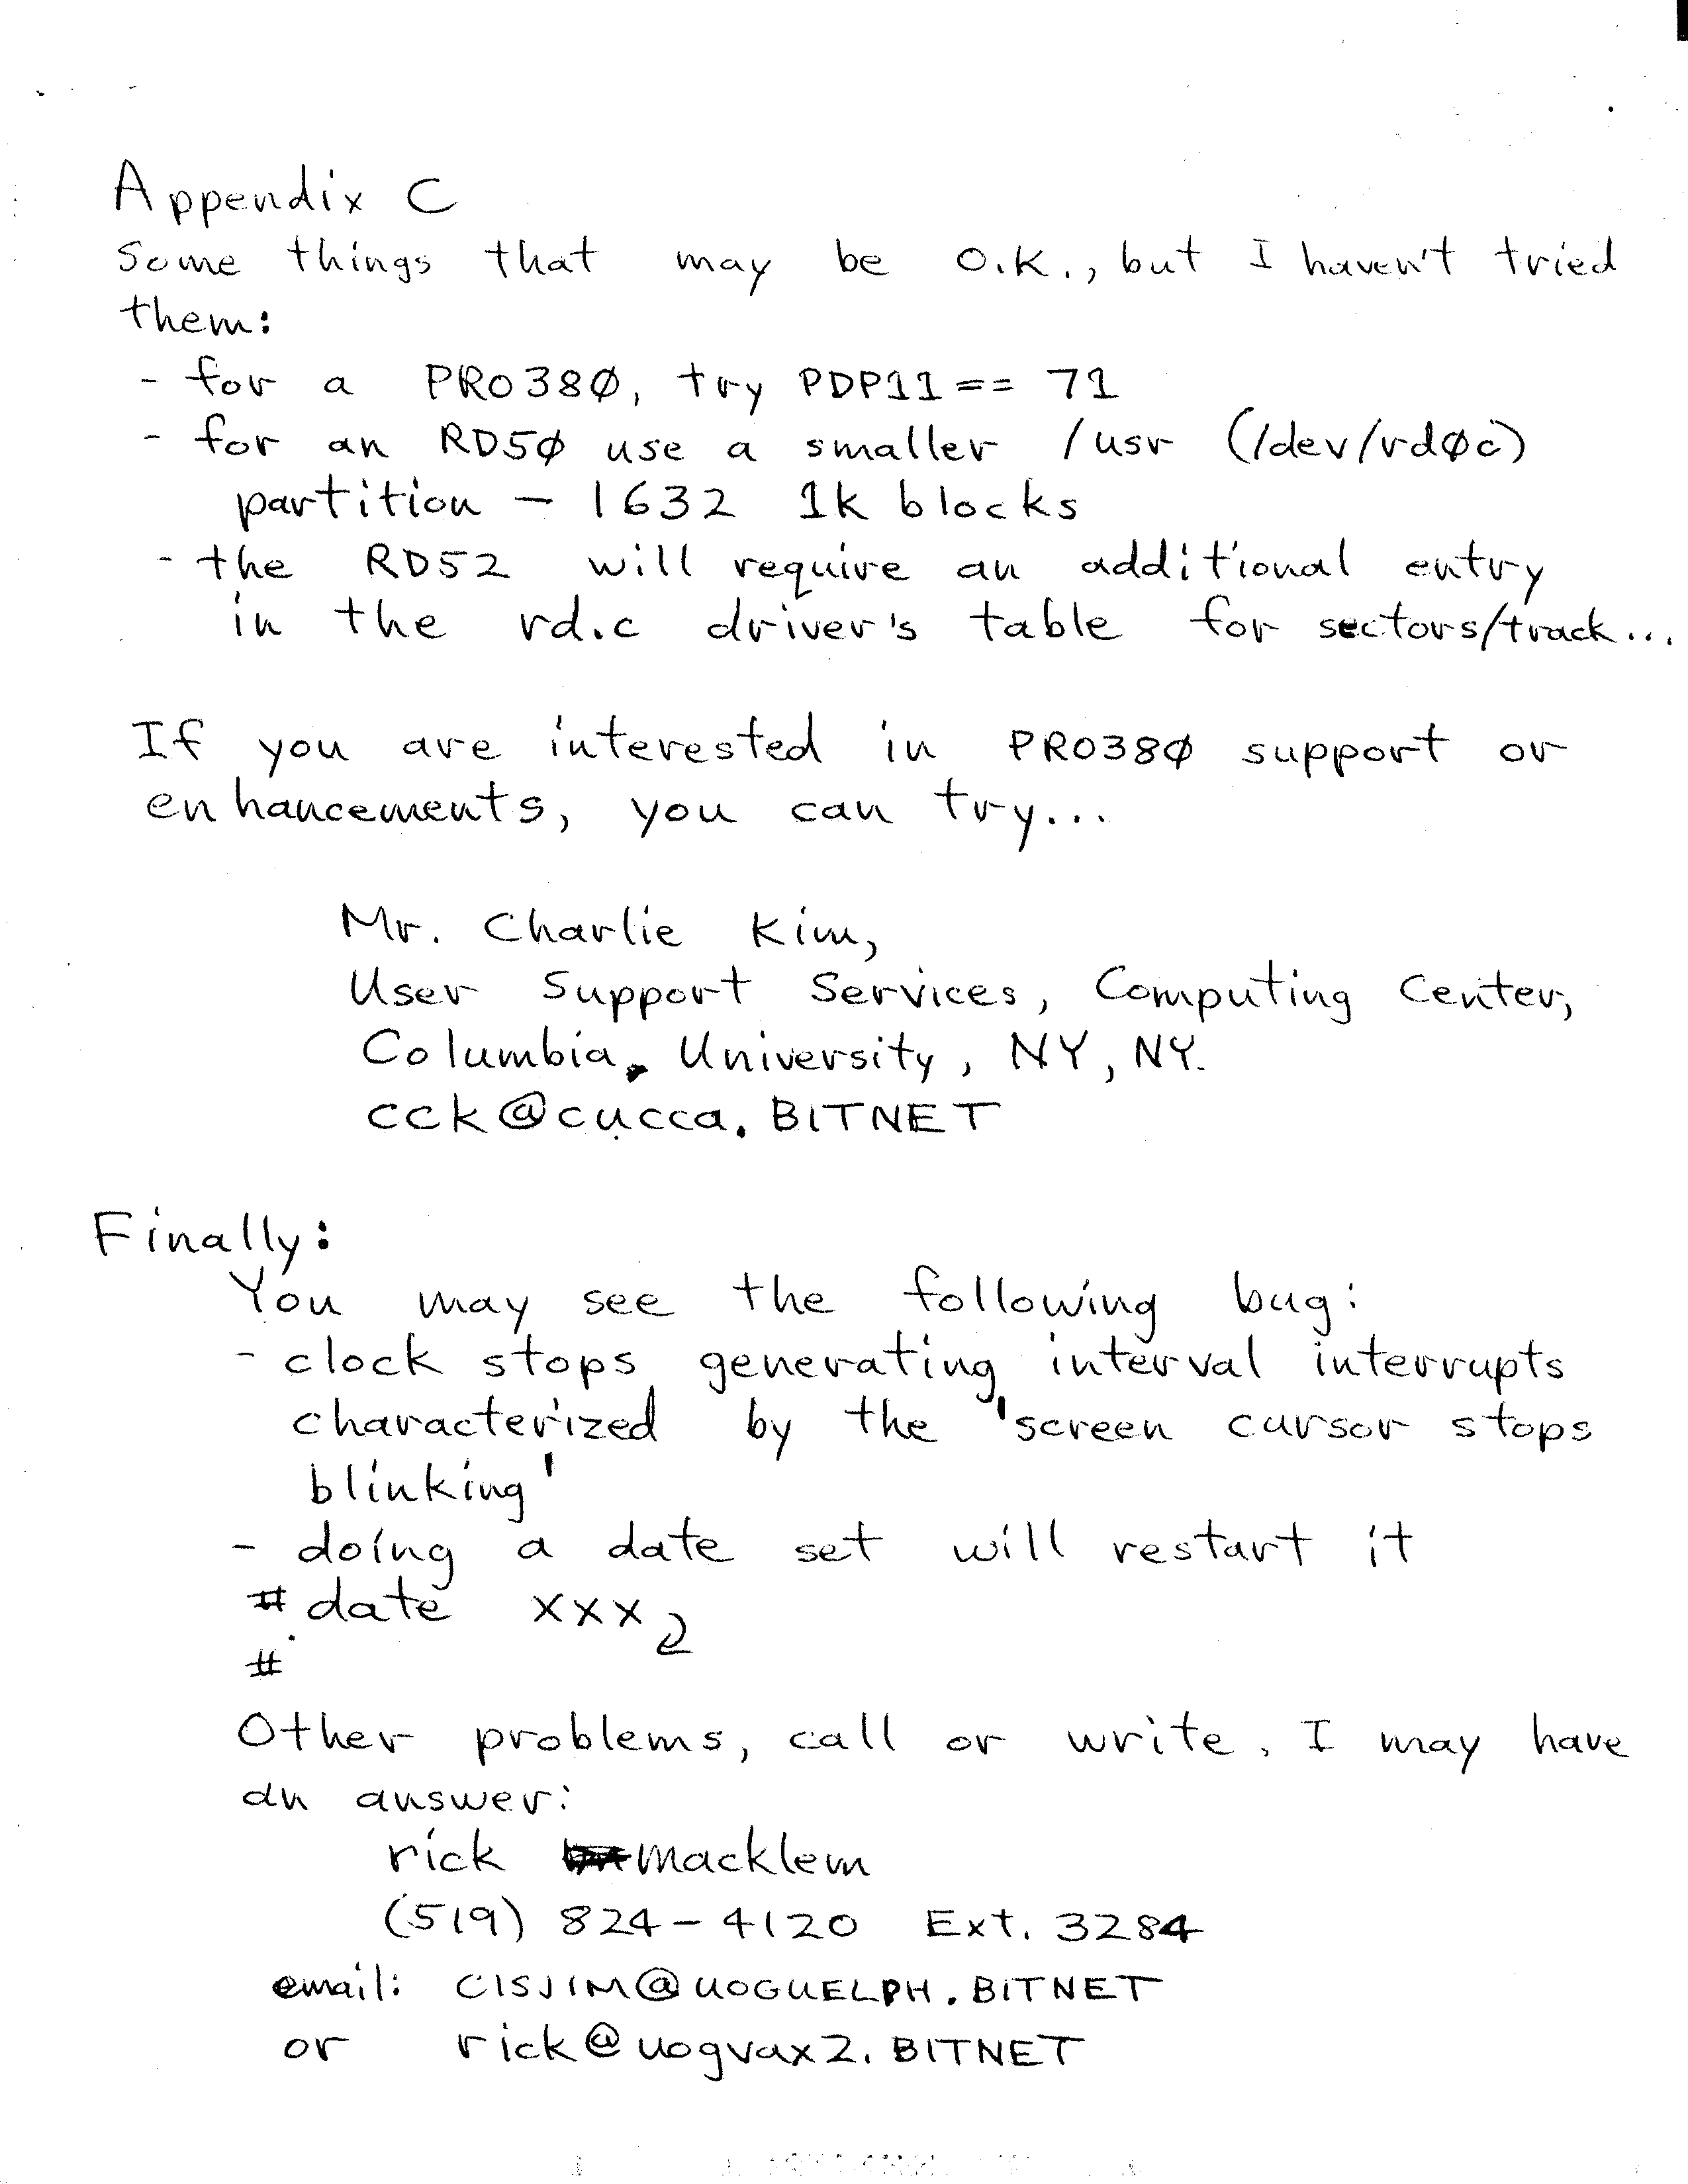 Appendix C
Some things that may be O.K., but I haven't tried
them:
- for a PRO38Ø, try PDP11 == 71
- for an RD5Ø use a smaller /usr (/dev/rdØc)
partition - 1632 1k blocks
- the RD52 will require an additional entry
in the rd.c driver's table for sectors/track...
If you are interested in PRO38Ø support or
enhancements, you can try...
Mr. Charlie Kim,
User Support Services, Computing Center,
Columbia, University, NY, NY.
cck@cucca.BITNET
Finally:
You may see the following bug:
- clock stops generating interval interrupts
characterized by the 'screen cursor stops
blinking'
- doing a date set will restart it
# date xxx
#
Other problems, call or write. I may have
an answer:
rick macklem
(519) 824-4120 Ext. 3284
email: CISJIM@UOGUELPH.BITNET
or rick@uogvax2.BITNET